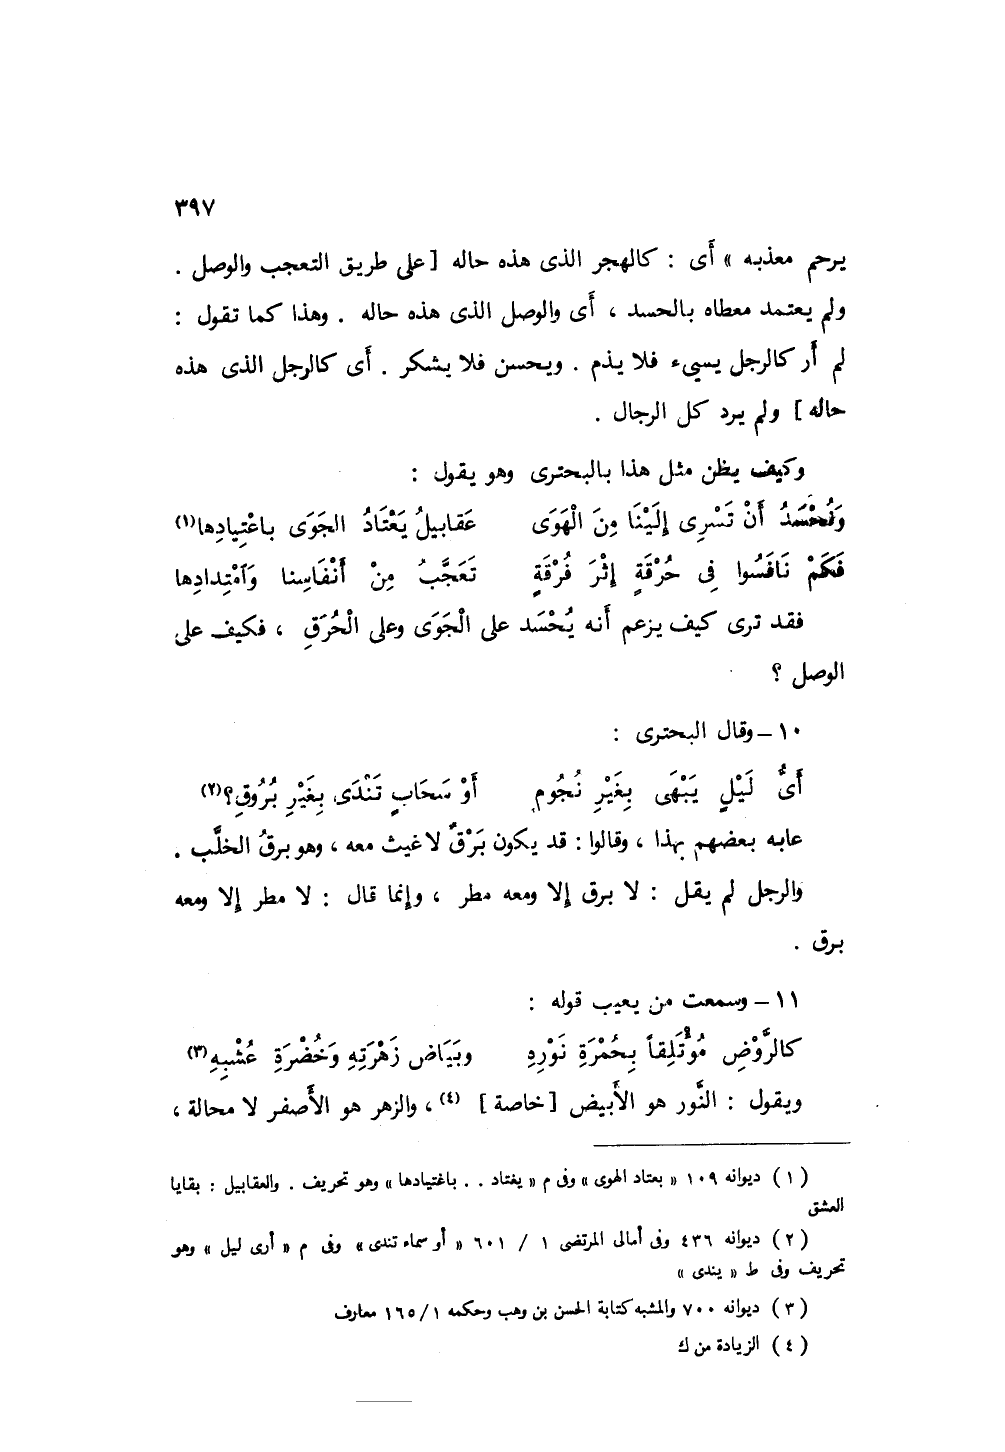 ٣٩٧
يرحم معذبه » أى : كالهجر الذى هذه حاله [ على طريق التعجب والوصل .
ولم يعتمد معطاه بالحسد ، أى والوصل الذى هذه حاله . وهذا كما تقول :
لم أر كالرجل يسيء فلا يذم . ويحسن فلا يشكر . أى كالرجل الذى هذه
حاله ] ولم يرد كل الرجال .
وكيف يظن مثل هذا بالبحترى وهو يقول :
وَنُحْسَدُ أَنْ تَسْرِى إِلَيْنَا مِنَ الْهَوَى عَقابيلُ يَعْتَادُ الجَوَى باعْتِيادِها(١)
فَكَمْ نَافَسُوا فِى حُرْقَةٍ إِثْرَ فُرْقَةٍ تَعَجَّبُ مِنْ أَنْفَاسِنا وَامْتِدادِها
فقد ترى كيف يزعم أنه يُحْسَد على الْجَوَى وعلى الْحُرَقِ ، فكيف على
الوصل ؟
١٠ – وقال البحترى :
أَىُّ لَيْلٍ يَبْهَى بِغَيْرِ نُجُومٍ أَوْ سَحَابٍ تَنْدَى بِغَيْرِ بُرُوقِ؟(٢)
عابه بعضهم بهذا ، وقالوا : قد يكون بَرْقٌ لا غيث معه ، وهو برقُ الخلَّب .
والرجل لم يقل : لا برق إلا ومعه مطر ، وإنما قال : لا مطر إلا ومعه
برق .
١١ – وسمعت من يعيب قوله :
كالرَّوْضِ مُؤْتَلِقاً بِحُمْرَةِ نَوْرِهِ وبَيَاض زَهْرَتِهِ وَخُضْرَةِ عُشْبِهِ(٣)
ويقول : النَّور هو الأَبيض [ خاصة ] (٤) ، والزهر هو الأَصفر لا محالة ،
( ١ ) ديوانه ١٠٩ « بعتاد الهوى » وفى م « يغتاد . . باغتيادها » وهو تحريف . والعقابيل : بقايا
العشق
( ٢ ) ديوانه ٤٣٦ وفى أمالى المرتضى ١ / ٦٠١ « أو سماء تندى » وفى م « أرى ليل » وهو
تحريف وفى ط « يندى »
( ٣ ) ديوانه ٧٠٠ والمشبه كتابة الحسن بن وهب وحكمه ١٦٥/١ معارف
( ٤ ) الزيادة من ك